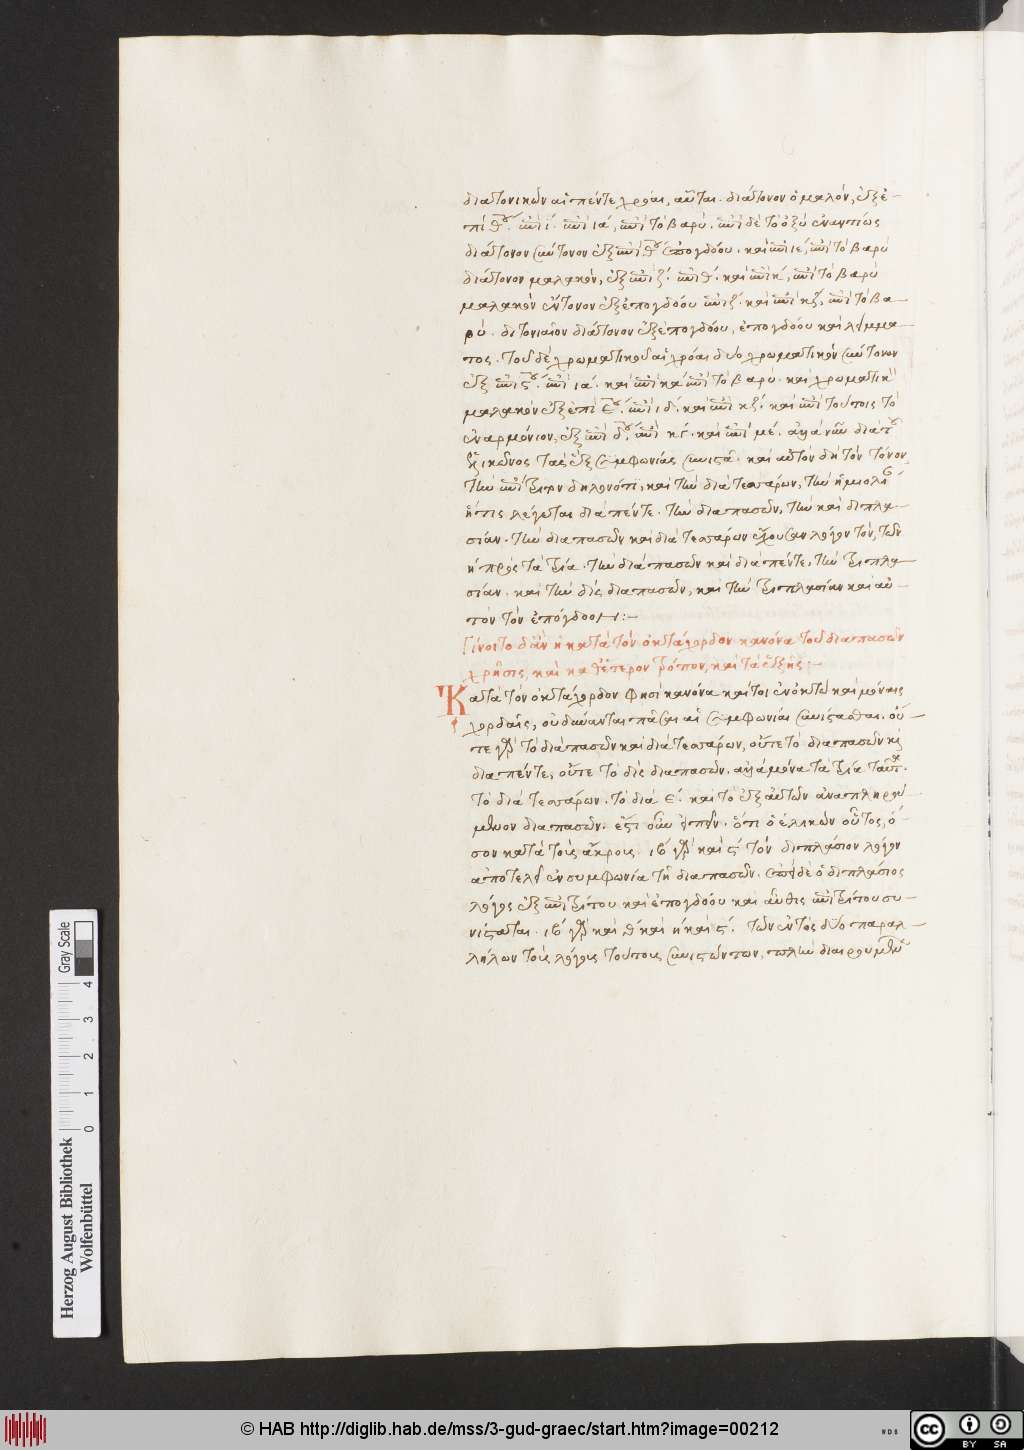 διατονικῶν αἱ πέντε χρόαι, αὗται. διάτονον ὁμαλόν, ἐξ ἐ-
πὶ θ´. ἐπὶ ι´. ἐπὶ ια´, ἐπὶ τὸ βαρύ. ἐπὶ δὲ τὸ ὀξὺ ἐναντίως
διάτονον σύντονον ἐξ ἐπὶ ἐπογδόου. καὶ ἐπὶ ιε´, ἐπὶ τὸ βαρύ
διάτονον μαλακόν, ἐξ ἐπὶ ζ´. ἐπὶ θ´. καὶ ἐπὶ κ´, ἐπὶ τὸ βαρύ
μαλακὸν ἔντονον ἐξ ἐπογδόου ἐπὶ ζ´. καὶ ἐπὶ κζ´, ἐπὶ τὸ βα-
ρύ. διτονιαῖον διάτονον ἐξ ἐπογδόου, ἐπογδόου καὶ λείμμα-
τος. τοῦ δὲ χρωματικοῦ αἱ χρόαι δύο χρωματικὸν σύντονον
ἐξ ἐπὶ ἐπὶ ια´. καὶ ἐπὶ κα´ ἐπὶ τὸ βαρύ. καὶ χρωματικὸν
μαλακὸν ἐξ ἐπὶ ε´. ἐπὶ ιδ´. καὶ ἐπὶ κζ´. καὶ ἐπὶ τούτοις τὸ
ἐναρμόνιον, ἐξ ἐπὶ δ´. ἐπὶ κγ´. καὶ ἐπὶ με´. ἀλλὰ νῦν διὰ τοῦ
ἑλικῶνος τὰς ἓξ συμφωνίας συνιστᾷ. καὶ αὐτὸν δὴ τὸν τόνον
τὴν ἐπίτριτον δηλονότι, καὶ τὴν διὰ τεσσάρων, τὴν ἡμιολίαν
ἥτις λέγεται διὰ πέντε. τὴν διαπασῶν, τὴν καὶ διπλα-
σίαν. τὴν διαπασῶν καὶ διὰ τεσσάρων ἔχουσαν λόγον τόν, τῶν
η´ πρὸς τὰ τρία. τὴν διαπασῶν καὶ διὰ πέντε, τὴν τριπλα-
σίαν. καὶ τὴν δὶς διαπασῶν, καὶ τὴν καὶ αὐ-
τὸν τὸν ἐπόγδοον:-
Γίνοιτο δ' ἂν ἡ κατὰ τὸν ὀκτάχορδον κανόνα τοῦ διαπασῶν
χρῆσις, καὶ καθ' ἕτερον τρόπον, καὶ τὰ ἑξῆς:-
Κατὰ τὸν ὀκτάχορδον φησὶ κανόνα καίτοι ἐν ὀκτὼ καὶ μόναις
χορδαῖς, οὐ δύνανται πᾶσαι αἱ συμφωνίαι συνίστασθαι. οὔ-
τε γὰρ τὸ διαπασῶν καὶ διὰ τεσσάρων, οὔτε τὸ διαπασῶν καὶ
διαπέντε, οὔτε τὸ δὶς διαπασῶν. ἀλλὰ μόνα τὰ τρία ταῦτα.
τὸ διὰ τεσσάρων. τὸ διὰ ε´. καὶ τὸ ἐξ αὐτῶν ἀναπληρού-
μενον διαπασῶν. ἔστι οὖν εἰπεῖν. ὅτι ὁ ἑλικὼν οὗτος, ὅ-
σον κατὰ τοὺς ἄκρους. ιβ´ γὰρ καὶ ϛ´ τὸν διπλάσιον λόγον
ἀποτελεῖ ἐν συμφωνίᾳ τῇ διαπασῶν. ἐπεὶ δὲ ὁ διπλάσιος
λόγος ἐξ ἐπιτρίτου καὶ ἐπογδόου καὶ αὖθις ἐπιτρίτου συ-
νίσταται. ιβ´ γὰρ καὶ θ´ καὶ η´ καὶ ϛ´. τῶν ἐντὸς δύο παραλ-
λήλων τοὺς λόγους τούτους συνιστώντων, πολλὴν διαιρουμένου
© HAB http://diglib.hab.de/mss/3-gud-graec/start.htm?image=00212
Herzog August Bibliothek
Wolfenbüttel
0 1 2 3 4
Gray Scale
WDB
cc BY SA